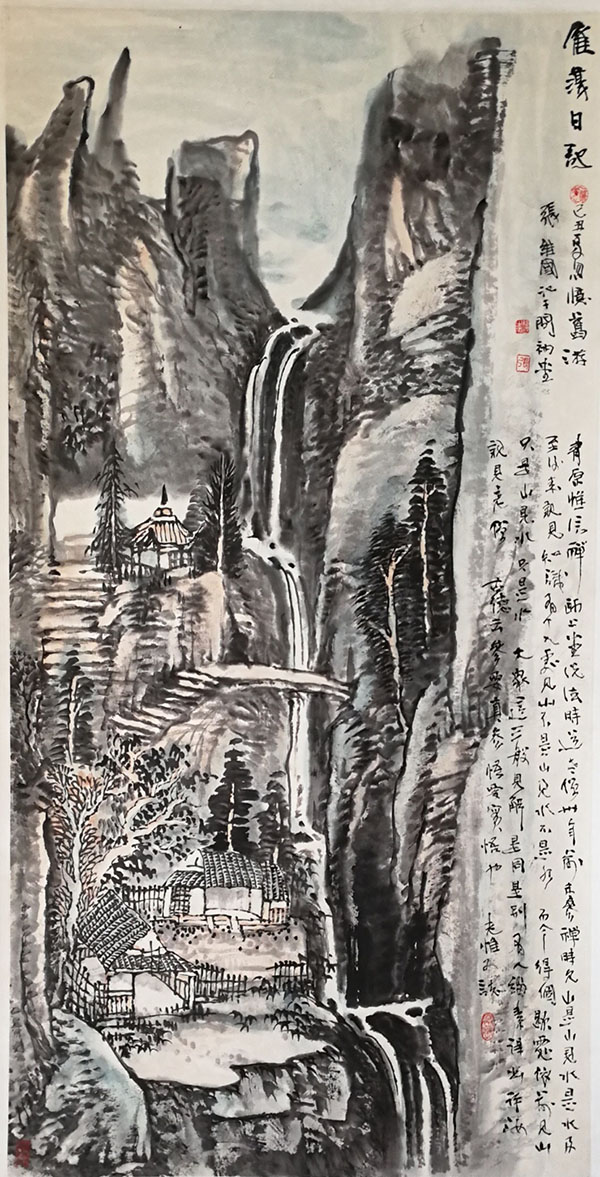 雁蕩日記
己丑夏月憶舊游
張
青原惟信禪師上堂说法時道老僧卅年前未參禪時見山是山見水是水及
至後來親見知識有个入處見山不是山見水不是水而今得個歇處依前見山
只是山見水只是水大眾這三般見解是同是別有人緇素得出許汝
親見老僧古德云參要真參悟要實悟也老惟又